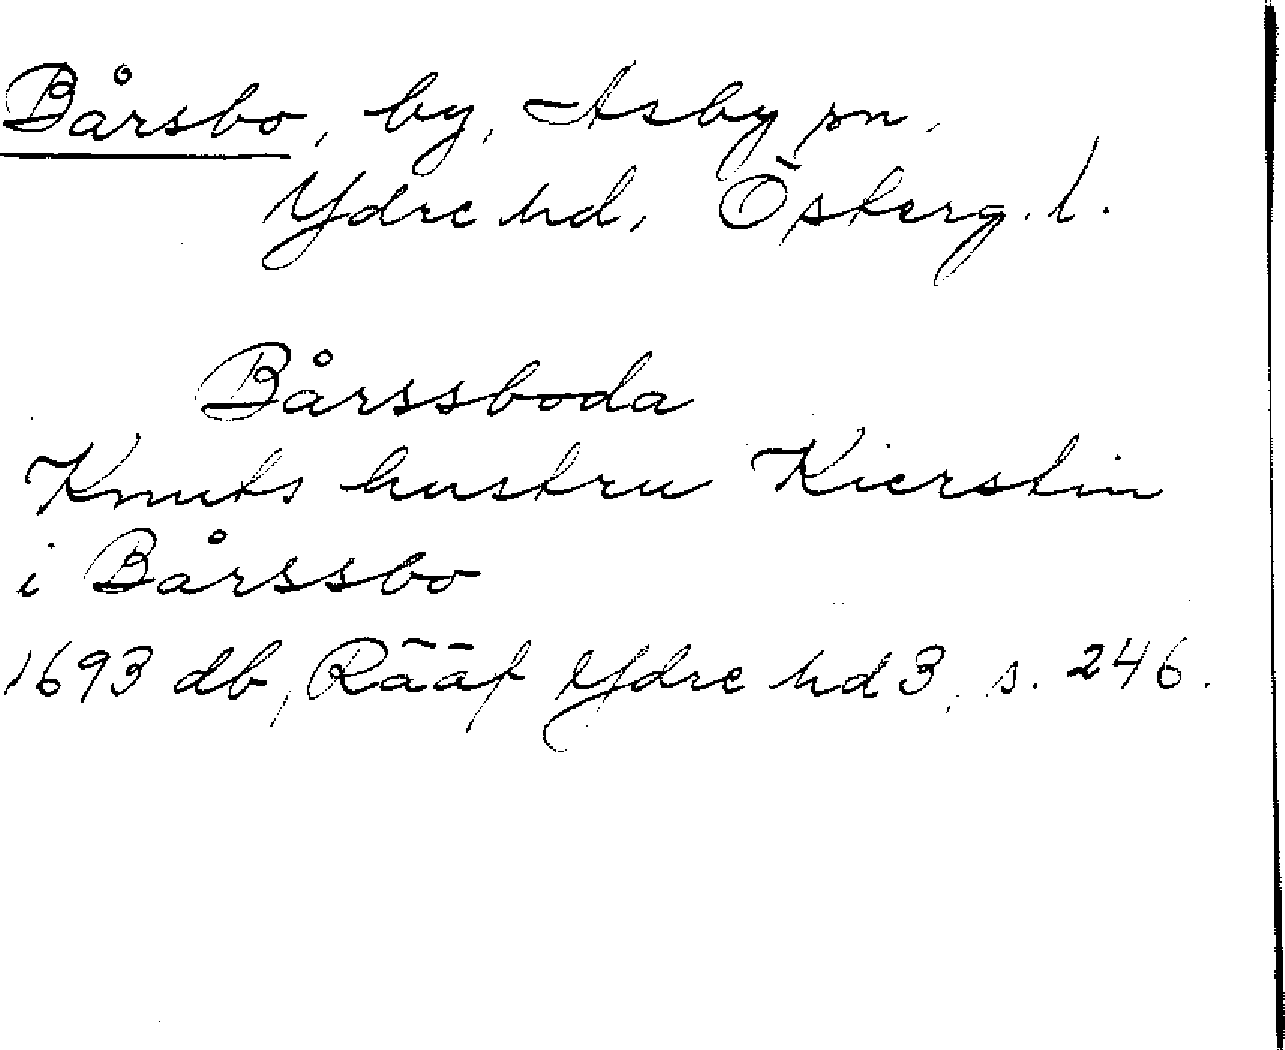 Bårsbo, by, Asby sn,
Ydre hd, Österg. l.
Bårssboda
Knuts hustru Kierstin
i Bårssbo
1693 db, Rääf Ydre hd 3, s. 246.